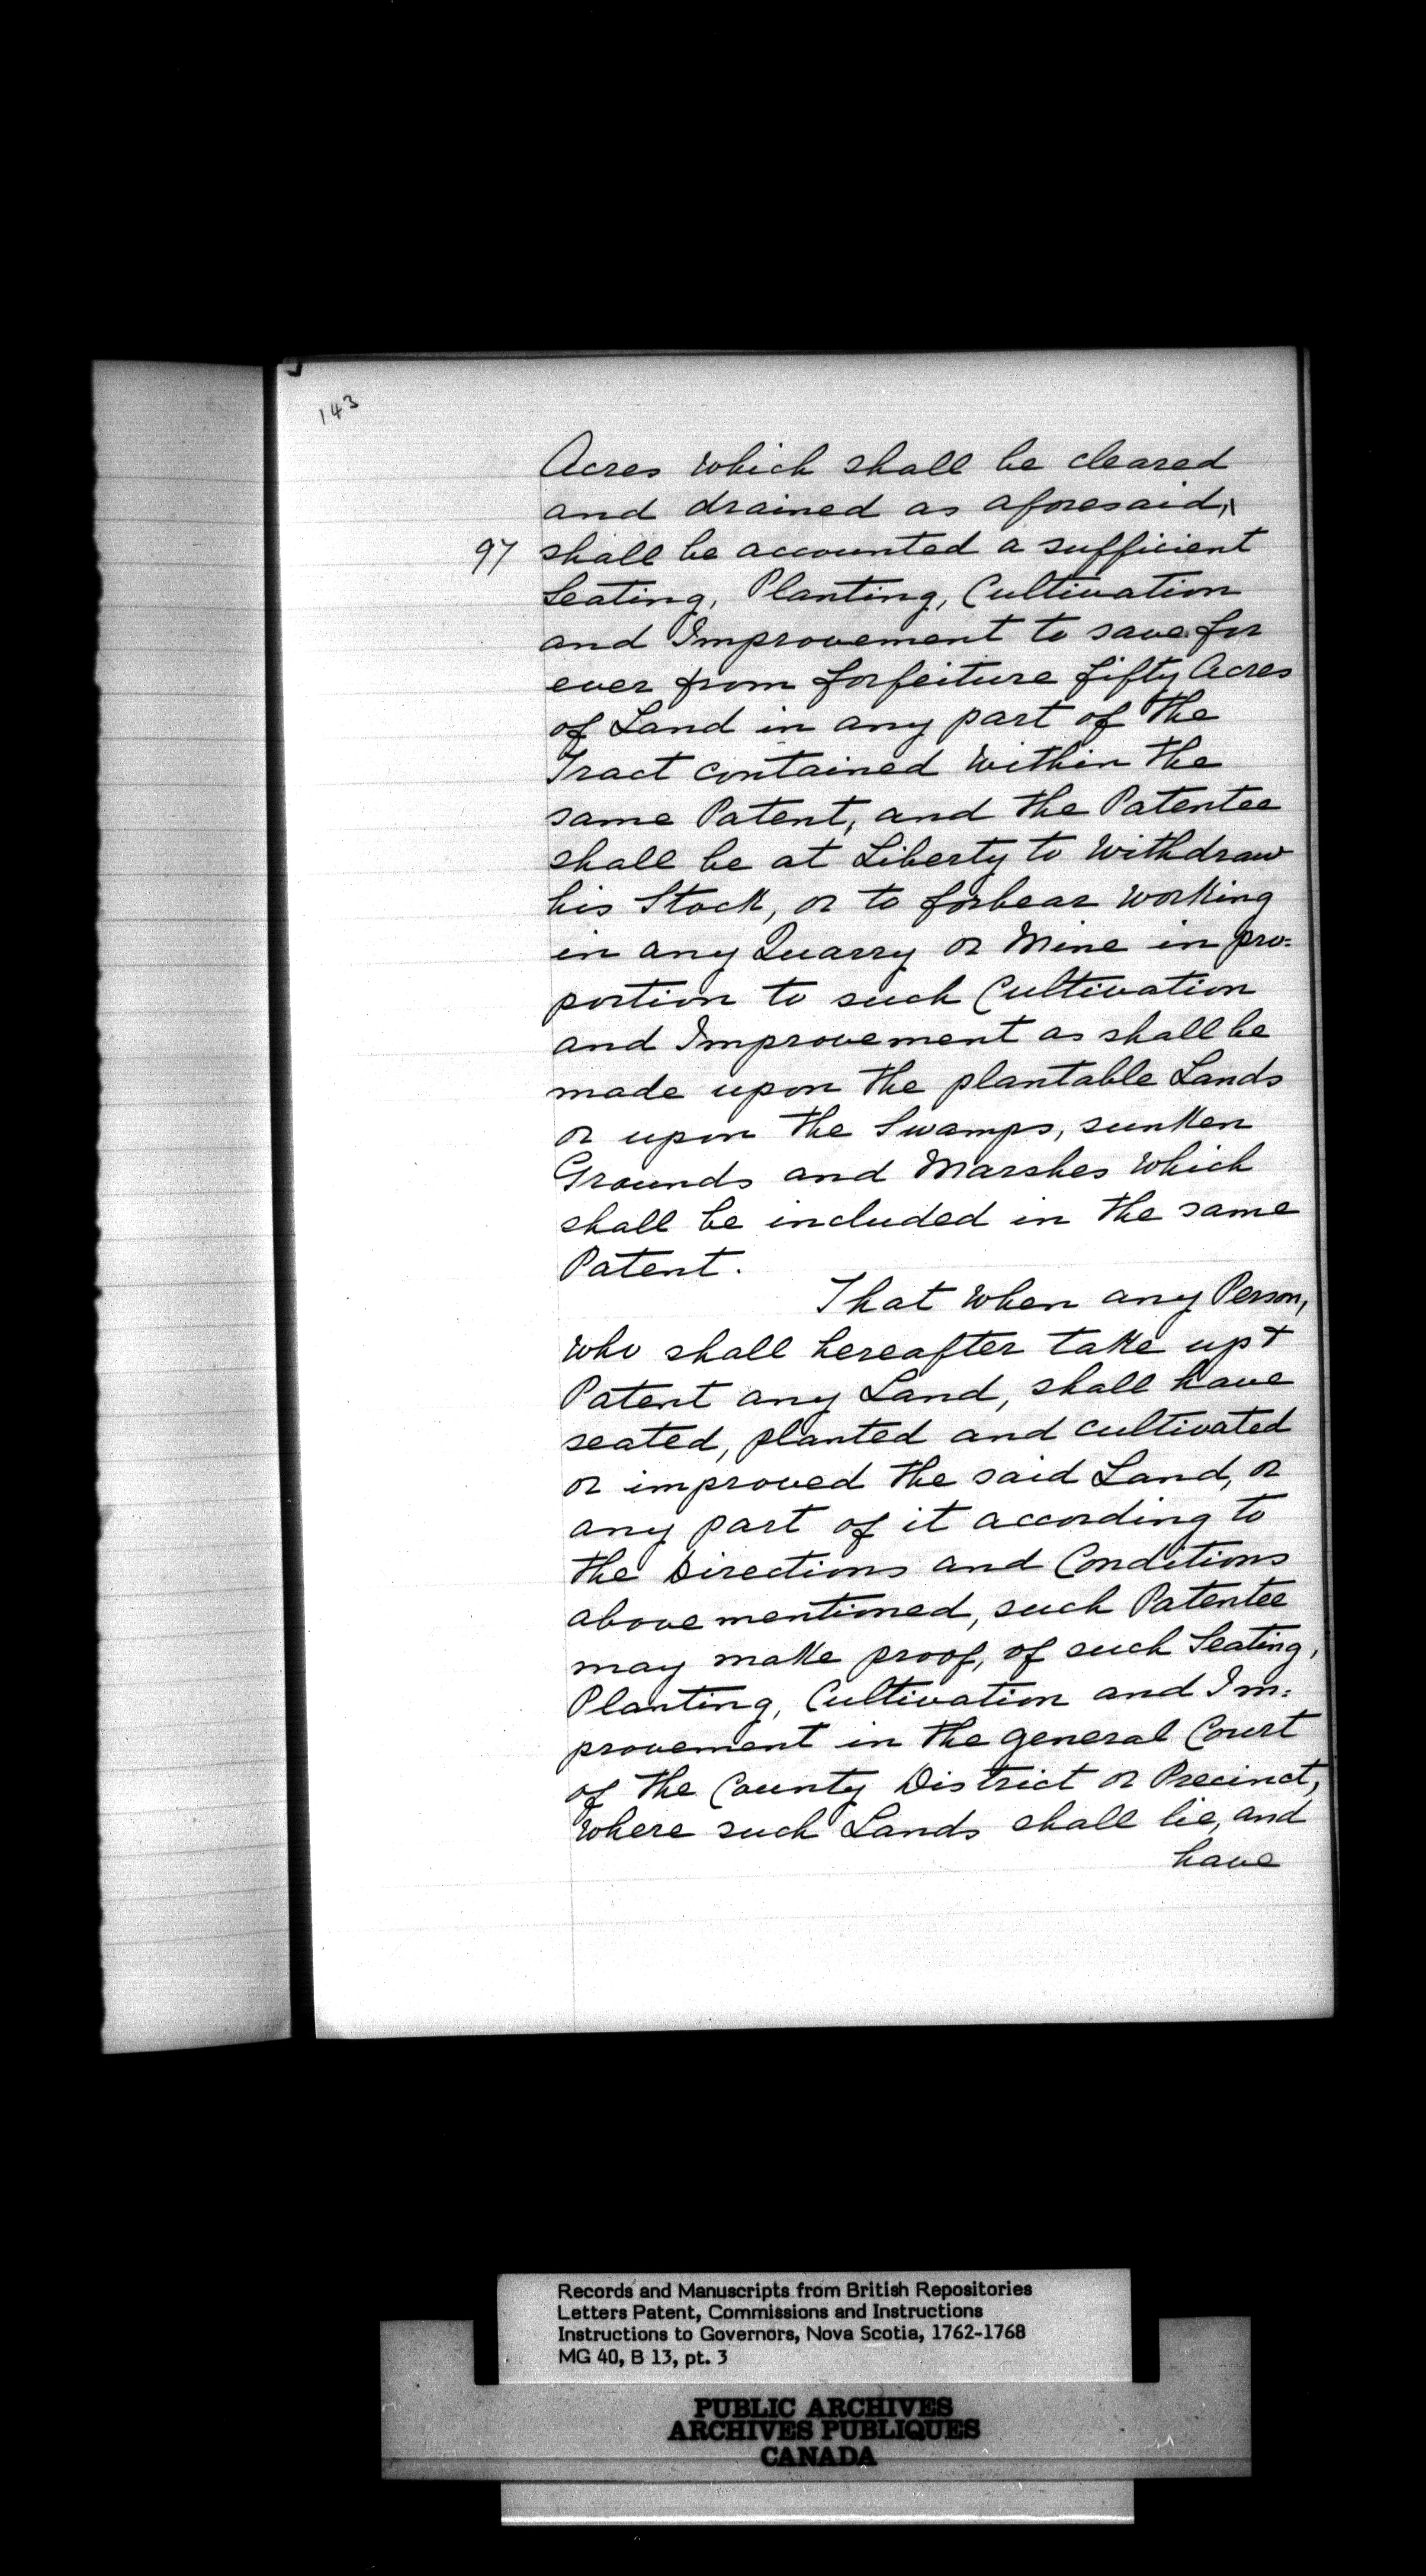 143
Acres which shall be cleared
and drained as aforesaid,\
97 shall be accounted a sufficient
Seating, Planting, Cultivation
and Improvement to save for
ever from forfeiture fifty Acres
of Land in any part of the
Tract contained within the
same Patent, and the Patentee
shall be at Liberty to withdraw
his Stock, or to forbear working
in any Quarry or Mine in pro=
portion to such Cultivation
and Improvement as shall be
made upon the plantable Lands
or upon the Swamps, sunken
Grounds and Marshes which
shall be included in the same
Patent.
That when any Person,
who shall hereafter take up &
Patent any Land, shall have
seated, planted and cultivated
or improved the said Land, or
any part of it according to
the Directions and Conditions
above mentioned, such Patentee
may make proof, of such Seating,
Planting, Cultivation and Im=
provement in the general Court
of the County District or Precinct,
where such Lands shall lie, and
have
Records and Manuscripts from British Repositories
Letters Patent, Commissions and Instructions
Instructions to Governors, Nova Scotia, 1762-1768
MG 40, B 13, pt. 3
PUBLIC ARCHIVES
ARCHIVES PUBLIQUES
CANADA